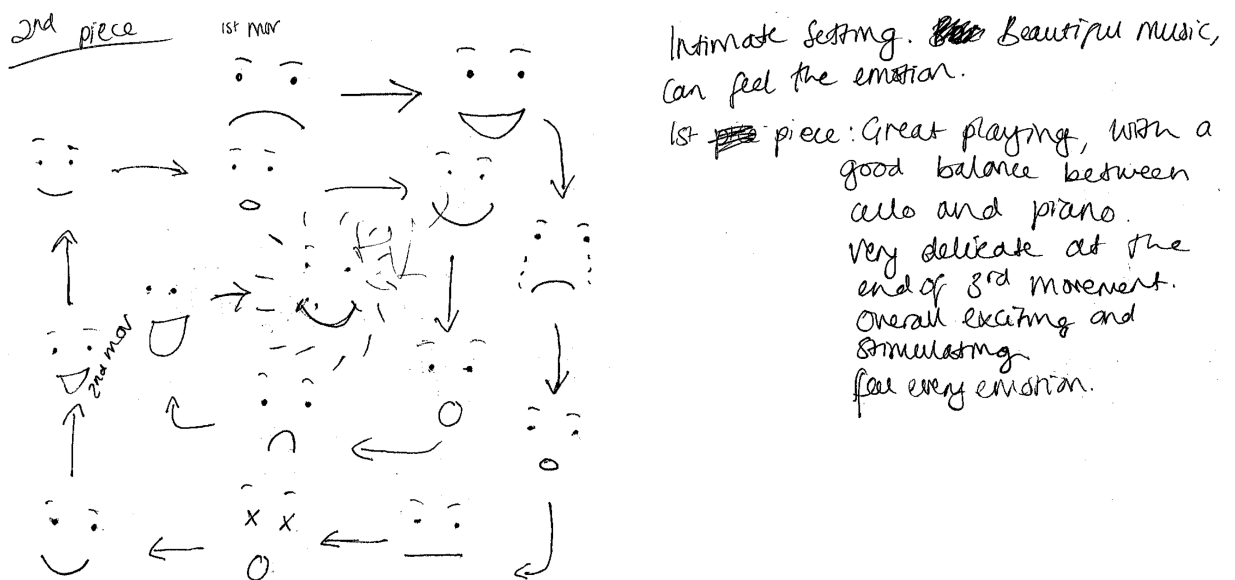 2nd piece
1st mov
2nd mov
Intimate setting. Beautiful music,
can feel the emotion.
1st piece: Great playing, with a
good balance between
cello and piano.
very delicate at the
end of 3rd movement.
Overall exciting and
stimulating
feel every emotion.